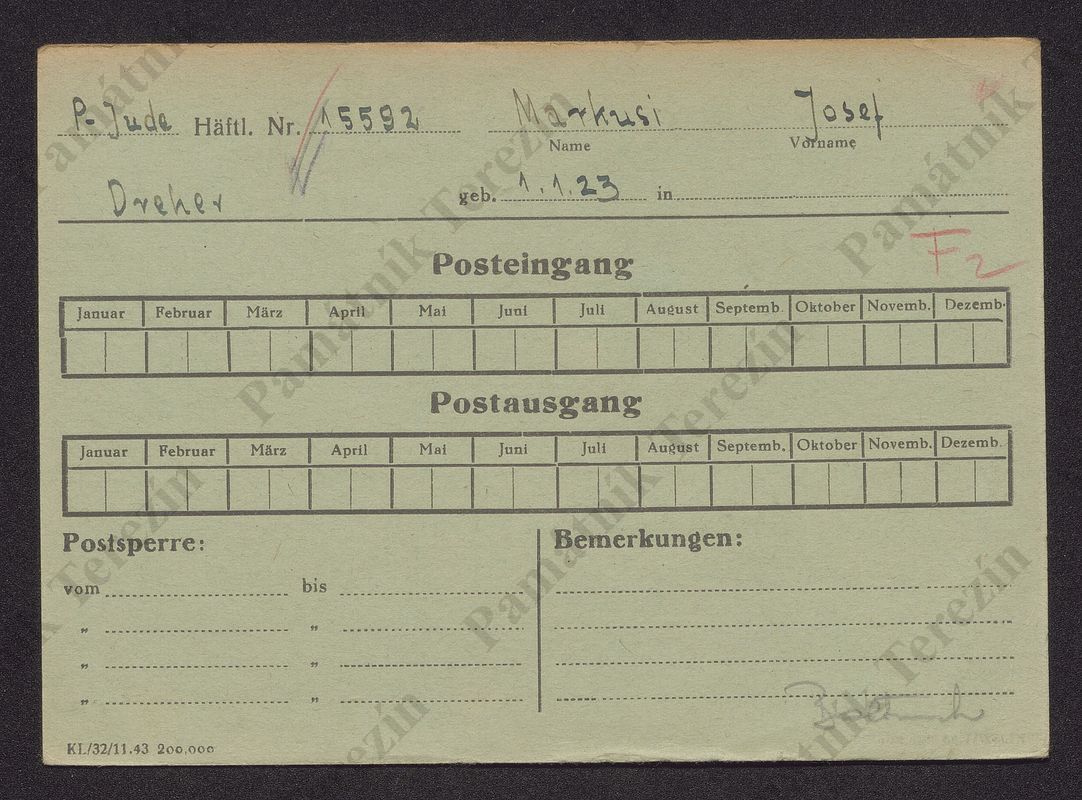 P- Jude Häftl. Nr. 15592 Markusi Josef
Name Vorname
Dreher geb. 1.1.23 in
F2
Posteingang
Januar Februar März April Mai Juni Juli August Septemb. Oktober Novemb. Dezemb.
Postausgang
Januar Februar März April Mai Juni Juli August Septemb. Oktober Novemb. Dezemb.
Postsperre: Bemerkungen:
vom bis
„ „
„ „
„ „
KL/32/11.43 200,000
Památník Terezín